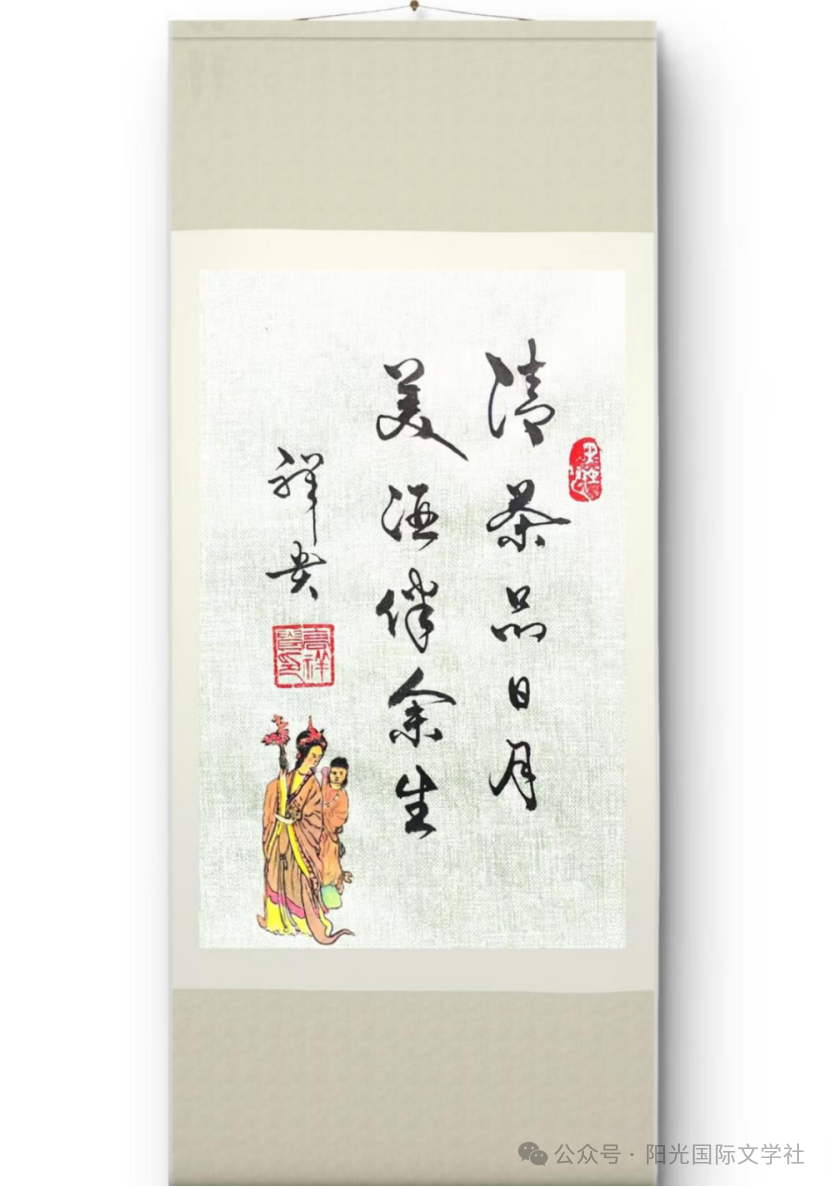 清茶品日月
美酒伴余生
祥贵
公众号 · 阳光国际文学社